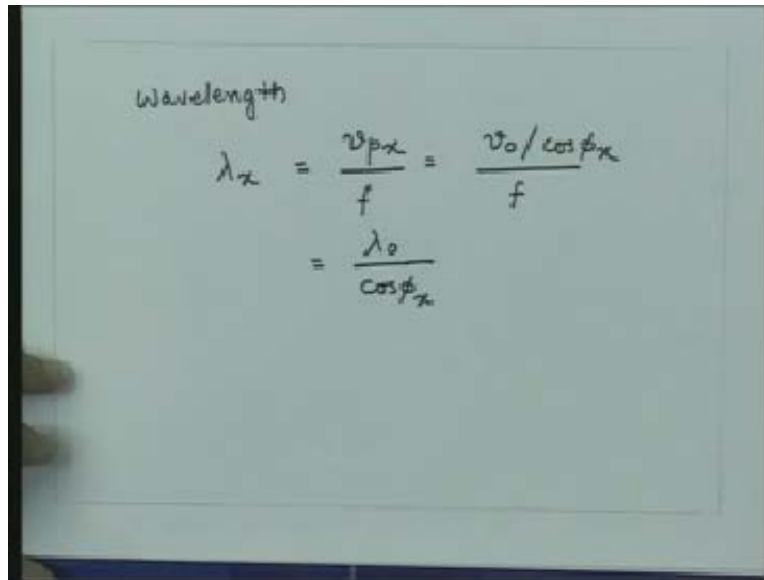 Wavelength
λx = vpx / f = v0/cosϕx / f
= λ0 / cosϕx